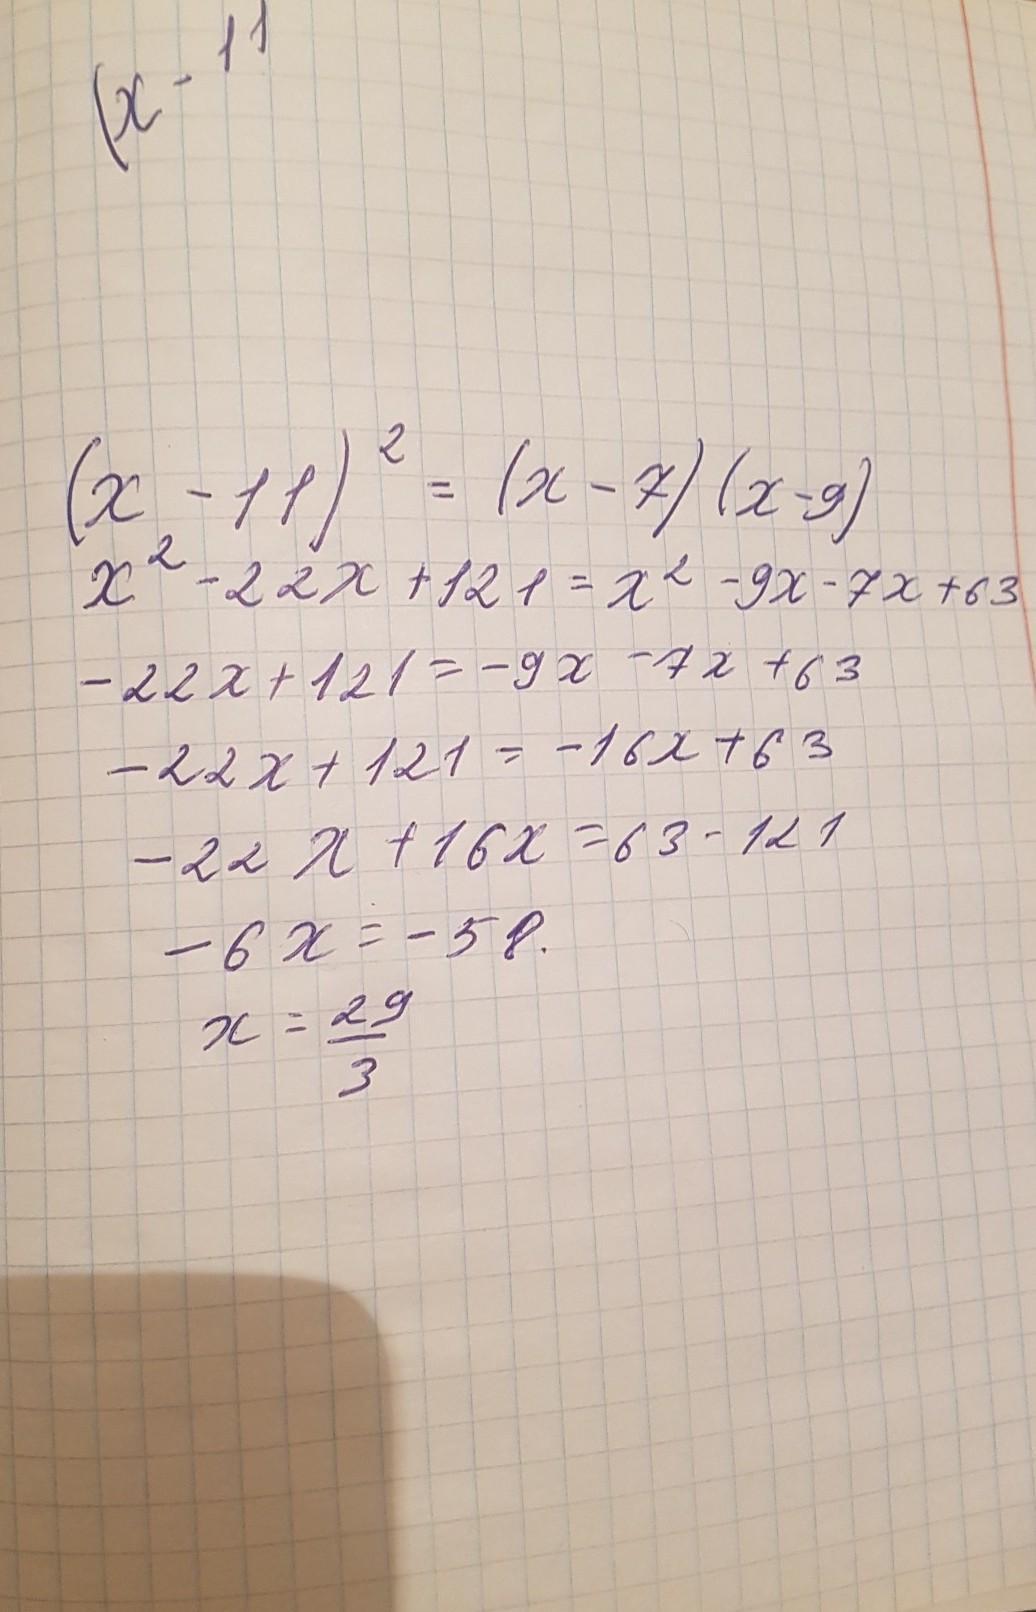 (x - 11
(x - 11)² = (x - 7)(x - 9)
x² - 22x + 121 = x² - 9x - 7x + 63
-22x + 121 = -9x - 7x + 63
-22x + 121 = -16x + 63
-22x + 16x = 63 - 121
-6x = -58.
x = 29/3